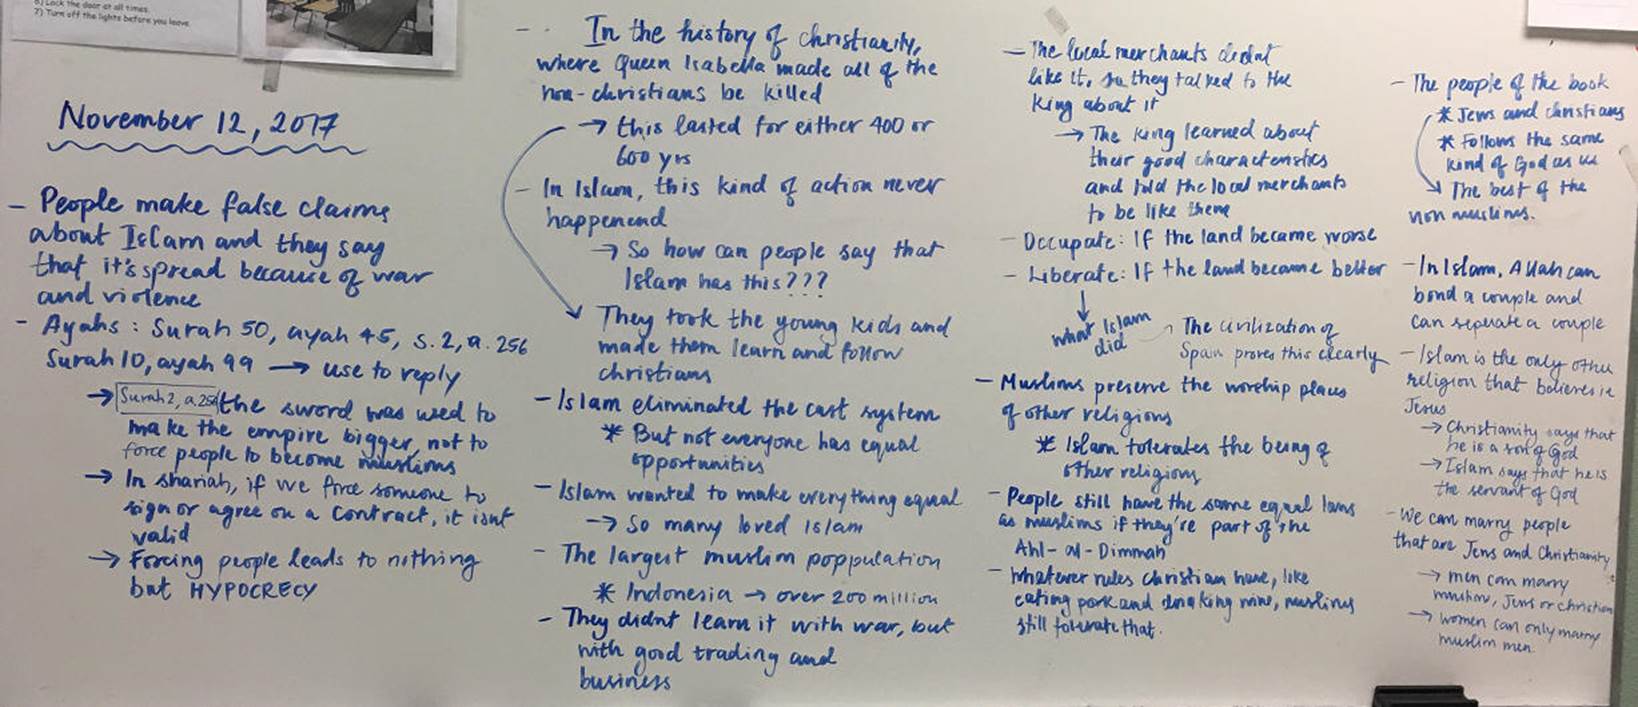 6) Lock the door at all times.
7) Turn off the lights before you leave
November 12, 2017
- People make false claims
about Islam and they say
that it's spread because of war
and violence
- Ayahs : Surah 50, ayah 45, s. 2, a. 256
Surah 10, ayah 99 → use to reply
→ Surah 2, a. 256 the sword was used to
make the empire bigger, not to
force people to become muslims
→ In shariah, if we force someone to
sign or agree on a contract, it isnt
valid
→ Forcing people leads to nothing
but HYPOCRECY
- In the history of christianity,
where Queen Isabella made all of the
non-christians be killed
→ this lasted for either 400 or
600 yrs
- In Islam, this kind of action never
happenend
→ So how can people say that
Islam has this???
They took the young kids and
made them learn and follow
christians
- Islam eliminated the cast system
* But not everyone has equal
opportunities
- Islam wanted to make everything equal
→ So many loved Islam
- The largest muslim poppulation
* Indonesia → over 200 million
- They didnt learn it with war, but
with good trading and
business
- The local merchants didnt
like it, so they talked to the
King about it
→ The King learned about
their good characteristics
and told the local merchants
to be like them
- Occupate: If the land became worse
- Liberate: If the land became better
what Islam
did
→ The civilization of
Spain proves this clearly
- Muslims preserve the worship places
of other religions
* Islam tolerates the being of
other religions
- People still have the same equal laws
as muslims if they're part of the
Ahl-al-Dimmah
- Whatever rules christian have, like
eating pork and drinking wine, muslims
still tolerate that.
- The people of the book
* Jews and christians
* Follows the same
kind of God as us
The best of the
non muslims.
- In Islam, Allah can
bond a couple and
can seperate a couple
- Islam is the only other
religion that believes in
Jesus
→ Christianity says that
he is a son of God
→ Islam says that he is
the servant of God
- We can marry people
that are Jews and Christianity
→ men can marry
muslim, Jews or christian
→ women can only marry
muslim men